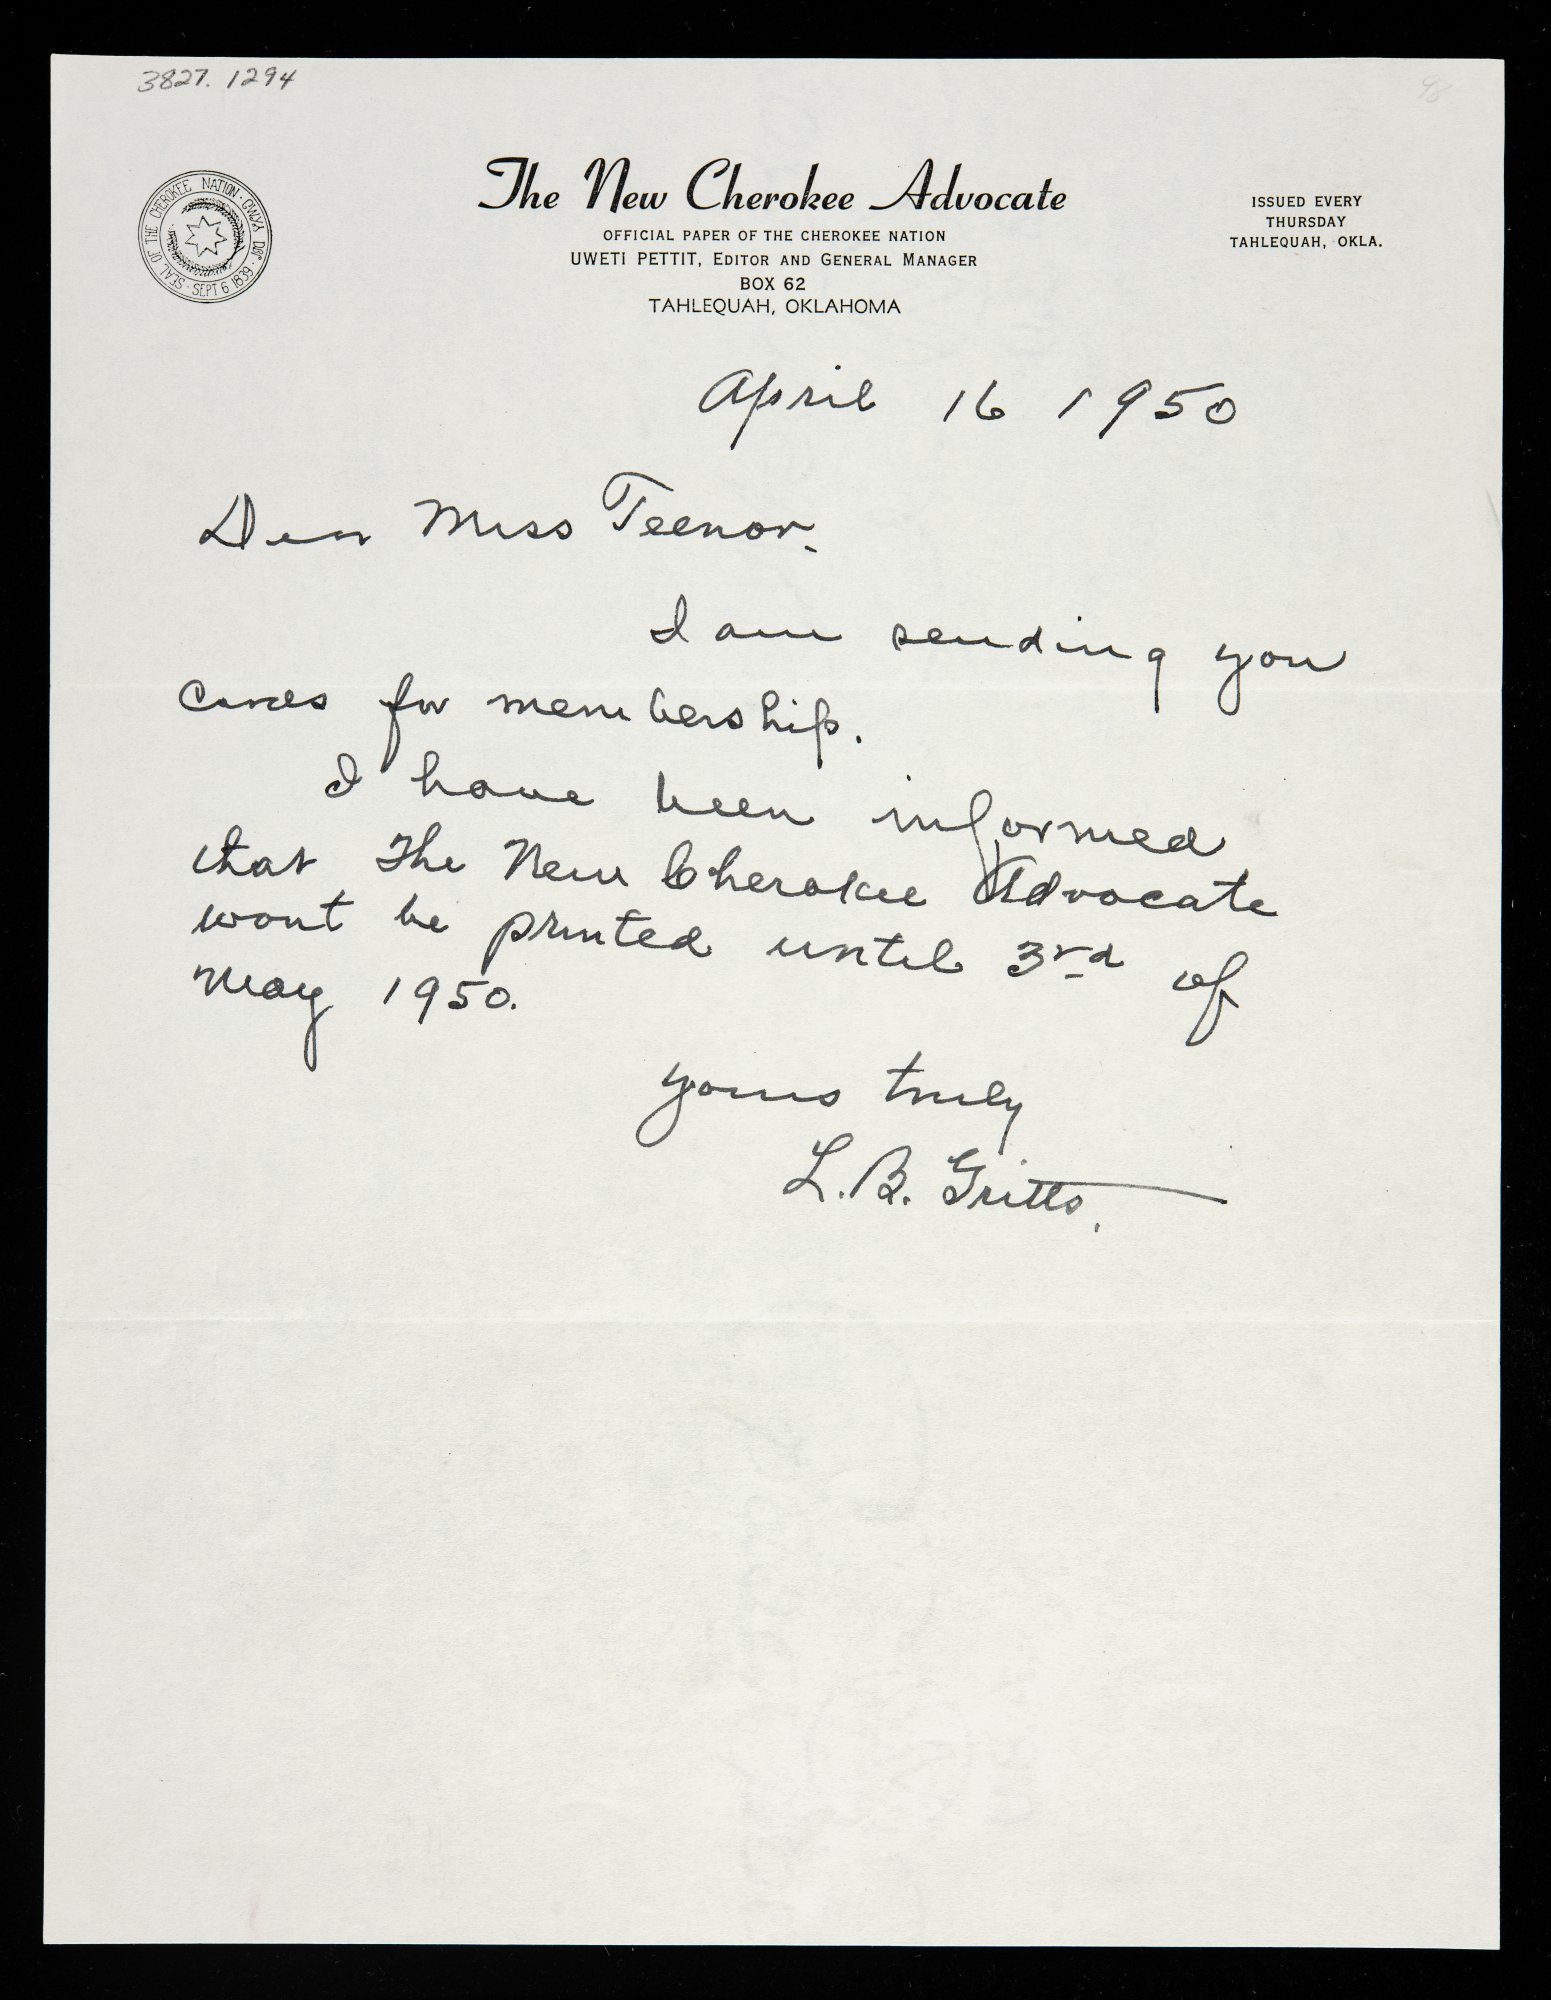 3827.1294
98
SEAL OF THE CHEROKEE NATION · SEPT 6 1839
The New Cherokee Advocate
OFFICIAL PAPER OF THE CHEROKEE NATION
UWETI PETTIT, EDITOR AND GENERAL MANAGER
BOX 62
TAHLEQUAH, OKLAHOMA
ISSUED EVERY
THURSDAY
TAHLEQUAH, OKLA.
April 16 1950
Dear Miss Teenor.
I am sending you
cards for membership.
I have been informed
that The New Cherokee Advocate
wont be printed until 3rd of
May 1950.
yours truly
L. B. Gritts.